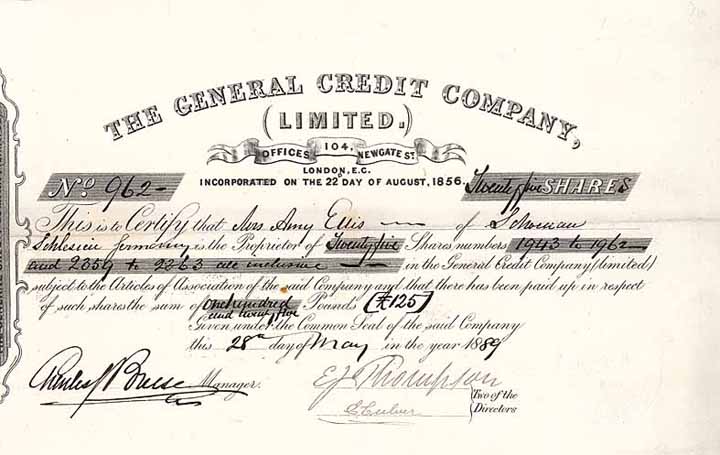 THE GENERAL CREDIT COMPANY,
(LIMITED.)
OFFICES 104, NEWGATE ST.
LONDON, E.C.
INCORPORATED ON THE 22D DAY OF AUGUST, 1856.
No 962 Twenty five SHARES
This is to Certify that Mrs Amy Ellis of
Schlesien Germany is the Proprietor of Twenty five Shares numbers 1943 to 1962
and 2359 to 2363 all inclusive in the General Credit Company (limited)
subject to the Articles of Association of the said Company and that there has been paid up in respect
of such shares the sum of One hundred and twenty five Pounds (£125)
Given under the Common Seal of the said Company
this 28th day of May in the year 1889
Manager.
E J Thompson
Two of the
Directors